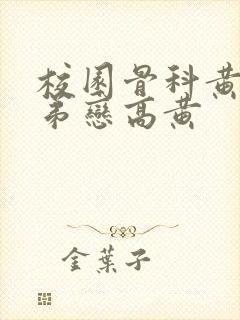 校園骨科黃
弟戀高黃
金葉子